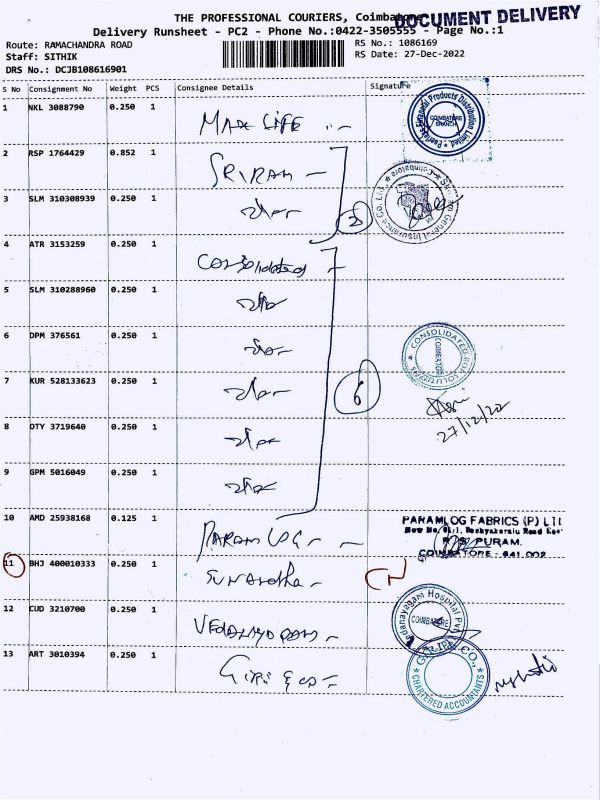 THE PROFESSIONAL COURIERS, Coimbatore
DOCUMENT DELIVERY
Delivery Runsheet - PC2 - Phone No.:0422-3505555 - Page No.:1
Route: RAMACHANDRA ROAD
RS No.: 1086169
Staff: SITHIK
RS Date: 27-Dec-2022
DRS No.: DCJB108616901
S No Consignment No Weight PCS Consignee Details Signature
1 NKL 3088790 0.250 1
MAX LIFE
COIMBATORE BRANCH
2 RSP 1764429 0.852 1
SRIRAM
3 SLM 310308939 0.250 1
4 ATR 3153259 0.250 1
Consolidated
5 SLM 310288960 0.250 1
6 DPM 376561 0.250 1
CONSOLIDATED
7 KUR 528133623 0.250 1
6
27/12/22
8 OTY 3719640 0.250 1
9 GPM 5016049 0.250 1
10 AMD 25938168 0.125 1
PARAMLOG
PARAMLOG FABRICS (P) LTD
PURAM.
COIMBATORE - 641 002
11 BHJ 400010333 0.250 1
12 CUD 3210700 0.250 1
Vedanayagam Hospital
COIMBATORE
13 ART 3010394 0.250 1
Giri & Co
CHARTERED ACCOUNTANTS